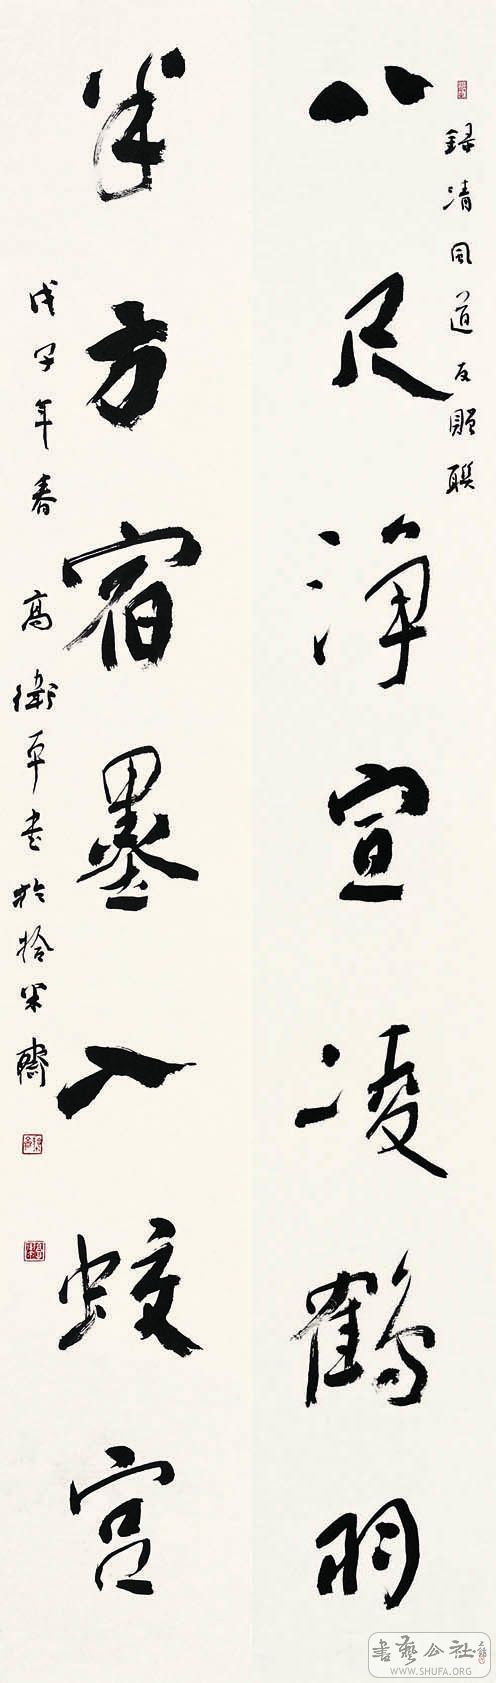 錄清風道友贈聯
八尺淨宣凌鶴羽
半方宿墨入蛟宮
戊子年春 高衛平書於拾米齋
書藝公社
WWW.SHUFA.ORG